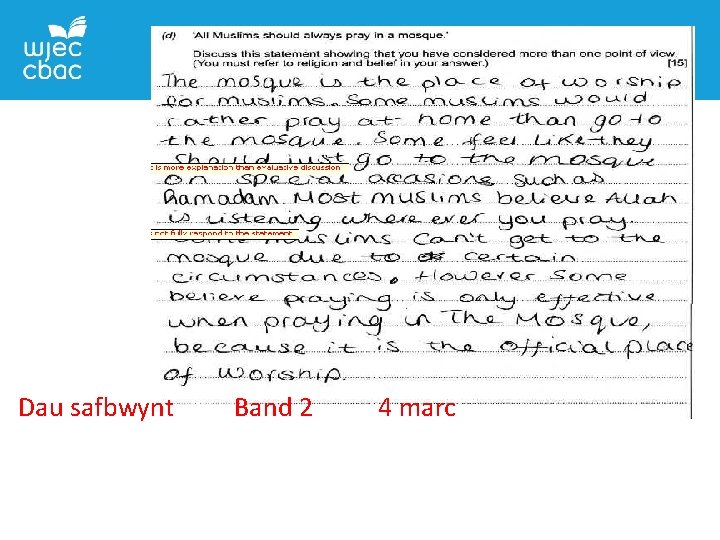 wjec
cbac
(d) 'All Muslims should always pray in a mosque.'
Discuss this statement showing that you have considered more than one point of view.
(You must refer to religion and belief in your answer.) [15]
The mosque is the place of worship
for muslims. Some muslims would
rather pray at home than go to
the mosque. Some feel like they
should just go to the mosque
is more explanation than evaluative discussion
on special accasions such as
Ramadam. Most muslims believe Allah
is listening where ever you pray.
not fully respond to the statement
Some muslims can't get to the
mosque due to certain
circumstances. However some
believe praying is only effective
when praying in The Mosque,
because it is the official place
of worship.
Dau safbwynt Band 2 4 marc